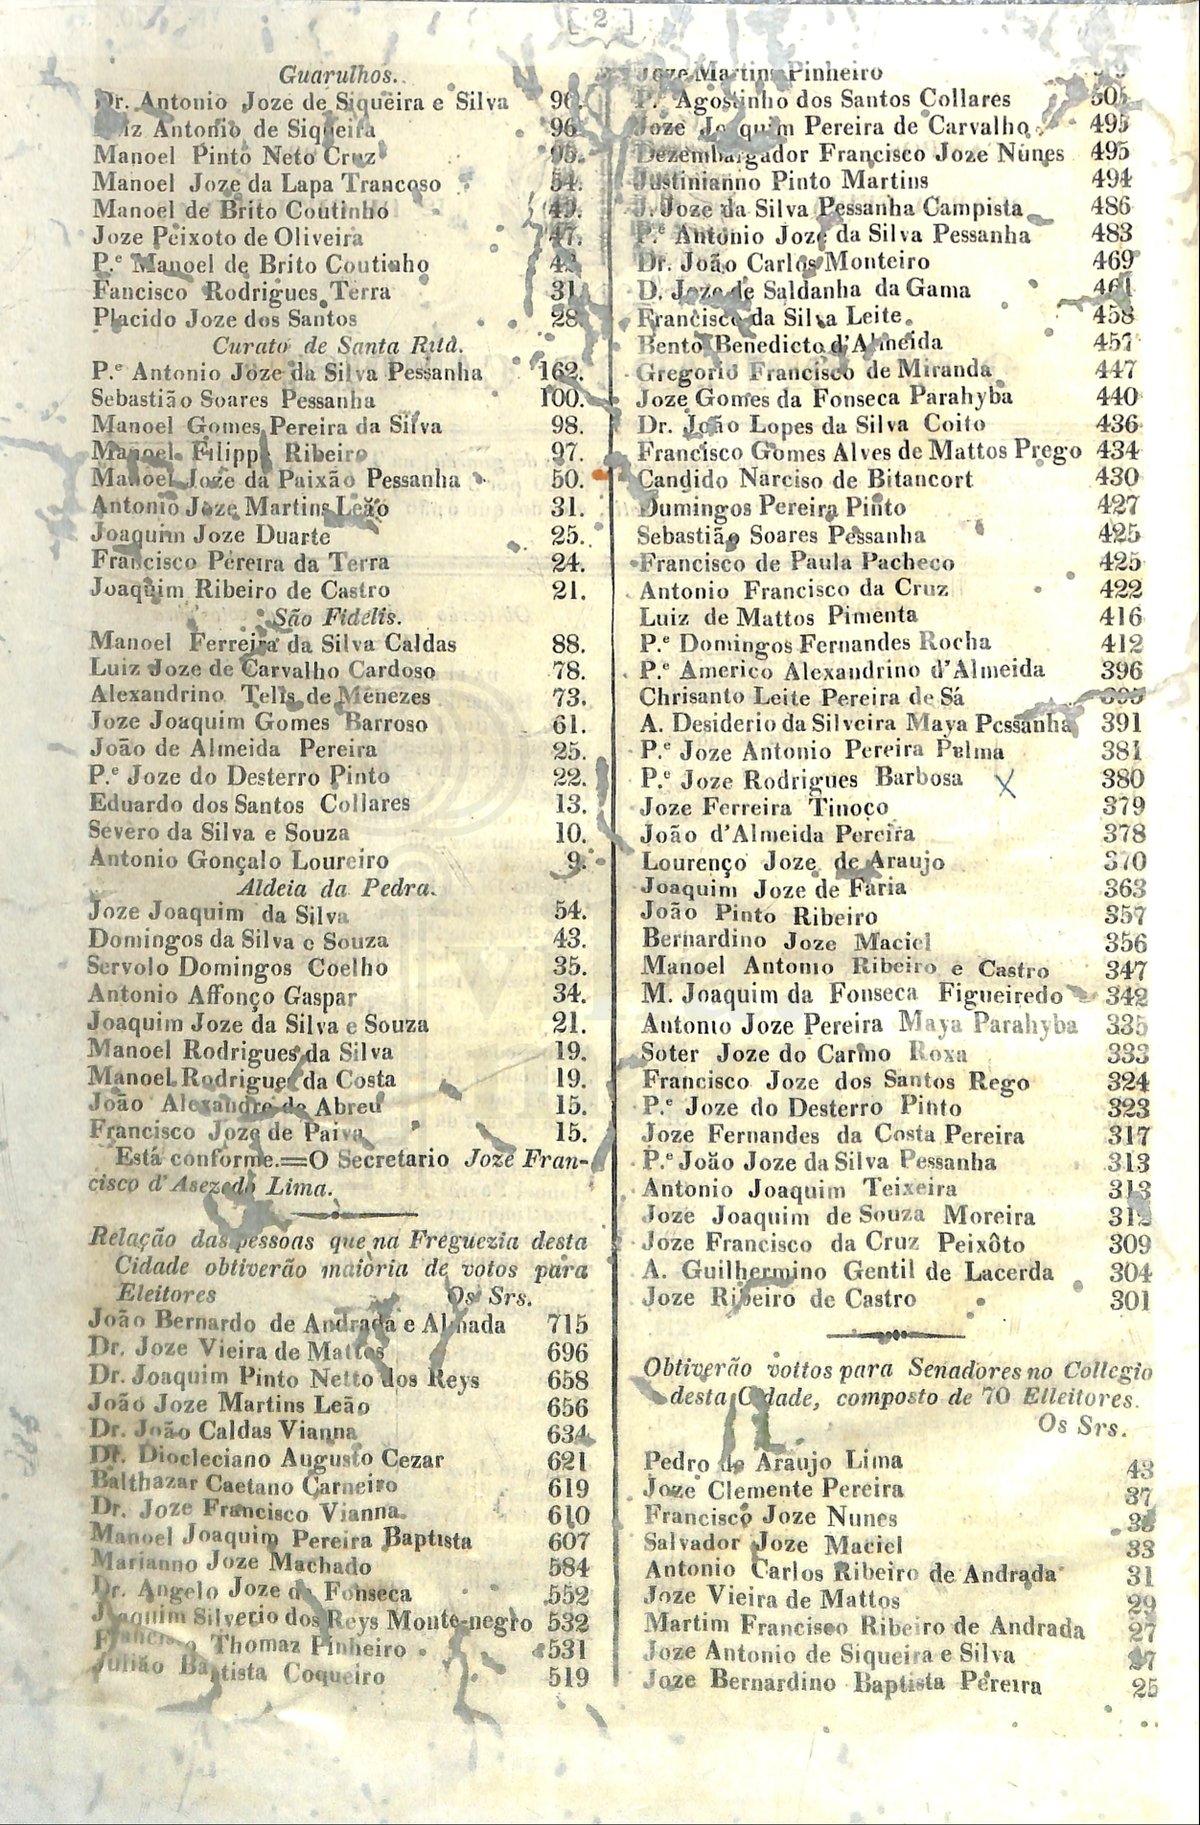 2
Guarulhos.
Dr. Antonio Joze de Siqueira e Silva 96.
Antonio de Siqueira 96.
Manoel Pinto Neto Cruz 95.
Manoel Joze da Lapa Trancoso 54.
Manoel de Brito Coutinho 49.
Joze Peixoto de Oliveira 47.
P.e Manoel de Brito Coutinho
Fancisco Rodrigues Terra 31
Placido Joze dos Santos 28
Curato de Santa Rita.
P.e Antonio Joze da Silva Pessanha 162.
Sebastião Soares Pessanha 100.
Manoel Gomes Pereira da Silva 98.
Manoel Filippe Ribeiro 97.
Manoel Joze da Paixão Pessanha 50.
Antonio Joze Martins Leão 31.
Joaquim Joze Duarte 25.
Francisco Pereira da Terra 24.
Joaquim Ribeiro de Castro 21.
São Fidelis.
Manoel Ferreira da Silva Caldas 88.
Luiz Joze de Carvalho Cardoso 78.
Alexandrino Telis de Menezes 73.
Joze Joaquim Gomes Barroso 61.
João de Almeida Pereira 25.
P.e Joze do Desterro Pinto 22.
Eduardo dos Santos Collares 13.
Severo da Silva e Souza 10.
Antonio Gonçalo Loureiro 9.
Aldeia da Pedra.
Joze Joaquim da Silva 54.
Domingos da Silva e Souza 43.
Servolo Domingos Coelho 35.
Antonio Affonço Gaspar 34.
Joaquim Joze da Silva e Souza 21.
Manoel Rodrigues da Silva 19.
Manoel Rodrigues da Costa 19.
João Alexandre de Abreu 15.
Francisco Joze de Paiva 15.
Está conforme.=O Secretario Joze Fran-
cisco d'Asezedo Lima.
Relação das pessoas que na Freguezia desta
Cidade obtiverão maioria de votos para
Eleitores Os Srs.
João Bernardo de Andrada e Almada 715
Dr. Joze Vieira de Mattos 696
Dr. Joaquim Pinto Netto dos Reys 658
João Joze Martins Leão 656
Dr. João Caldas Vianna 634
Dr. Diocleciano Augusto Cezar 621
Balthazar Caetano Carneiro 619
Dr. Joze Francisco Vianna 610
Manoel Joaquim Pereira Baptista 607
Marianno Joze Machado 584
Dr. Angelo Joze da Fonseca 552
Joaquim Silverio dos Reys Monte-negro 532
Francisco Thomaz Pinheiro 531
Julião Baptista Coqueiro 519
Joze Martins Pinheiro
P.e Agostinho dos Santos Collares 505
Joze Joaquim Pereira de Carvalho 495
Dezembargador Francisco Joze Nunes 495
Justinianno Pinto Martins 494
J. Joze da Silva Pessanha Campista 486
P.e Antonio Joze da Silva Pessanha 483
Dr. João Carlos Monteiro 469
D. Joze de Saldanha da Gama 461
Francisco da Silva Leite 458
Bento Benedicto d'Almeida 457
Gregorio Francisco de Miranda 447
Joze Gomes da Fonseca Parahyba 440
Dr. João Lopes da Silva Coito 436
Francisco Gomes Alves de Mattos Prego 434
Candido Narciso de Bitancort 430
Dumingos Pereira Pinto 427
Sebastião Soares Pessanha 425
Francisco de Paula Pacheco 425
Antonio Francisco da Cruz 422
Luiz de Mattos Pimenta 416
P.e Domingos Fernandes Rocha 412
P.e Americo Alexandrino d'Almeida 396
Chrisanto Leite Pereira de Sá 395
A. Desiderio da Silveira Maya Pessanha 391
P.e Joze Antonio Pereira Palma 381
P.e Joze Rodrigues Barbosa X 380
Joze Ferreira Tinoço 379
João d'Almeida Pereira 378
Lourenço Joze de Araujo 370
Joaquim Joze de Faria 363
João Pinto Ribeiro 357
Bernardino Joze Maciel 356
Manoel Antonio Ribeiro e Castro 347
M. Joaquim da Fonseca Figueiredo 342
Antonio Joze Pereira Maya Parahyba 335
Soter Joze do Carmo Roxa 333
Francisco Joze dos Santos Rego 324
P.e Joze do Desterro Pinto 323
Joze Fernandes da Costa Pereira 317
P.e João Joze da Silva Pessanha 313
Antonio Joaquim Teixeira 313
Joze Joaquim de Souza Moreira 312
Joze Francisco da Cruz Peixôto 309
A. Guilhermino Gentil de Lacerda 304
Joze Ribeiro de Castro 301
Obtiverão vottos para Senadores no Collegio
desta Cidade, composto de 70 Elleitores.
Os Srs.
Pedro de Araujo Lima 43
Joze Clemente Pereira 37
Francisco Joze Nunes
Salvador Joze Maciel 33
Antonio Carlos Ribeiro de Andrada 31
Joze Vieira de Mattos 29
Martim Francisco Ribeiro de Andrada 27
Joze Antonio de Siqueira e Silva 27
Joze Bernardino Baptista Pereira 25